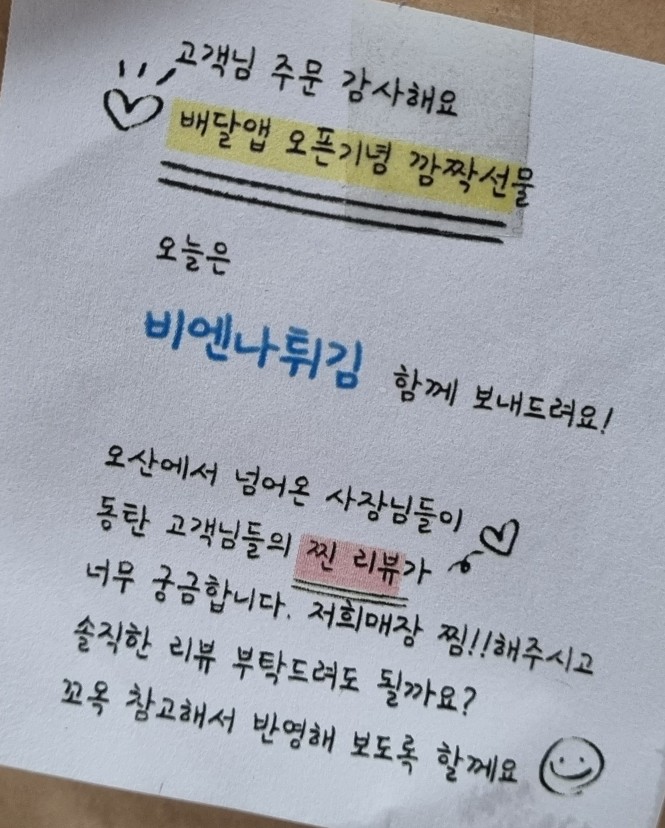 고객님 주문 감사해요
배달앱 오픈기념 깜짝선물
오늘은
비엔나튀김 함께 보내드려요!
오산에서 넘어온 사장님들이
동탄 고객님들의 찐 리뷰가
너무 궁금합니다. 저희매장 찜!!해주시고
솔직한 리뷰 부탁드려도 될까요?
꼬옥 참고해서 반영해 보도록 할께요